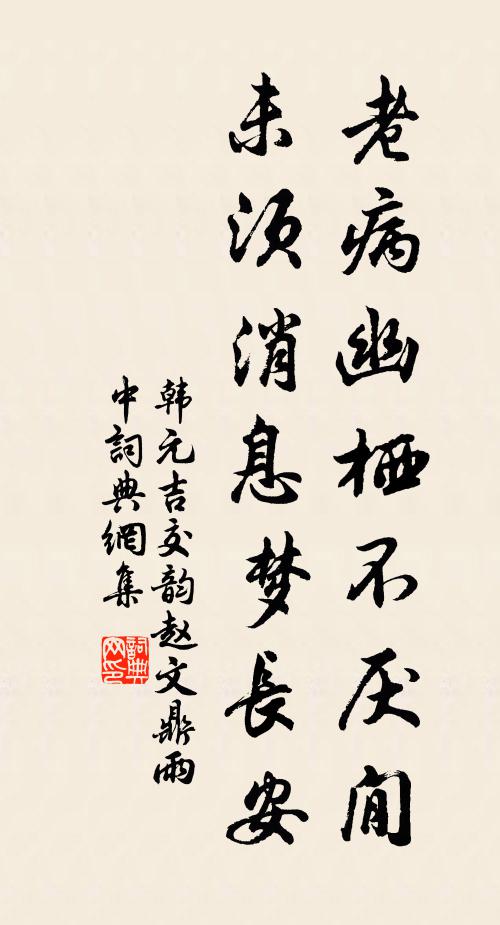 老病幽栖不厌闲
未须消息梦長安
韩元吉交韵赵文鼎雨
中詞典網集
詞典网印